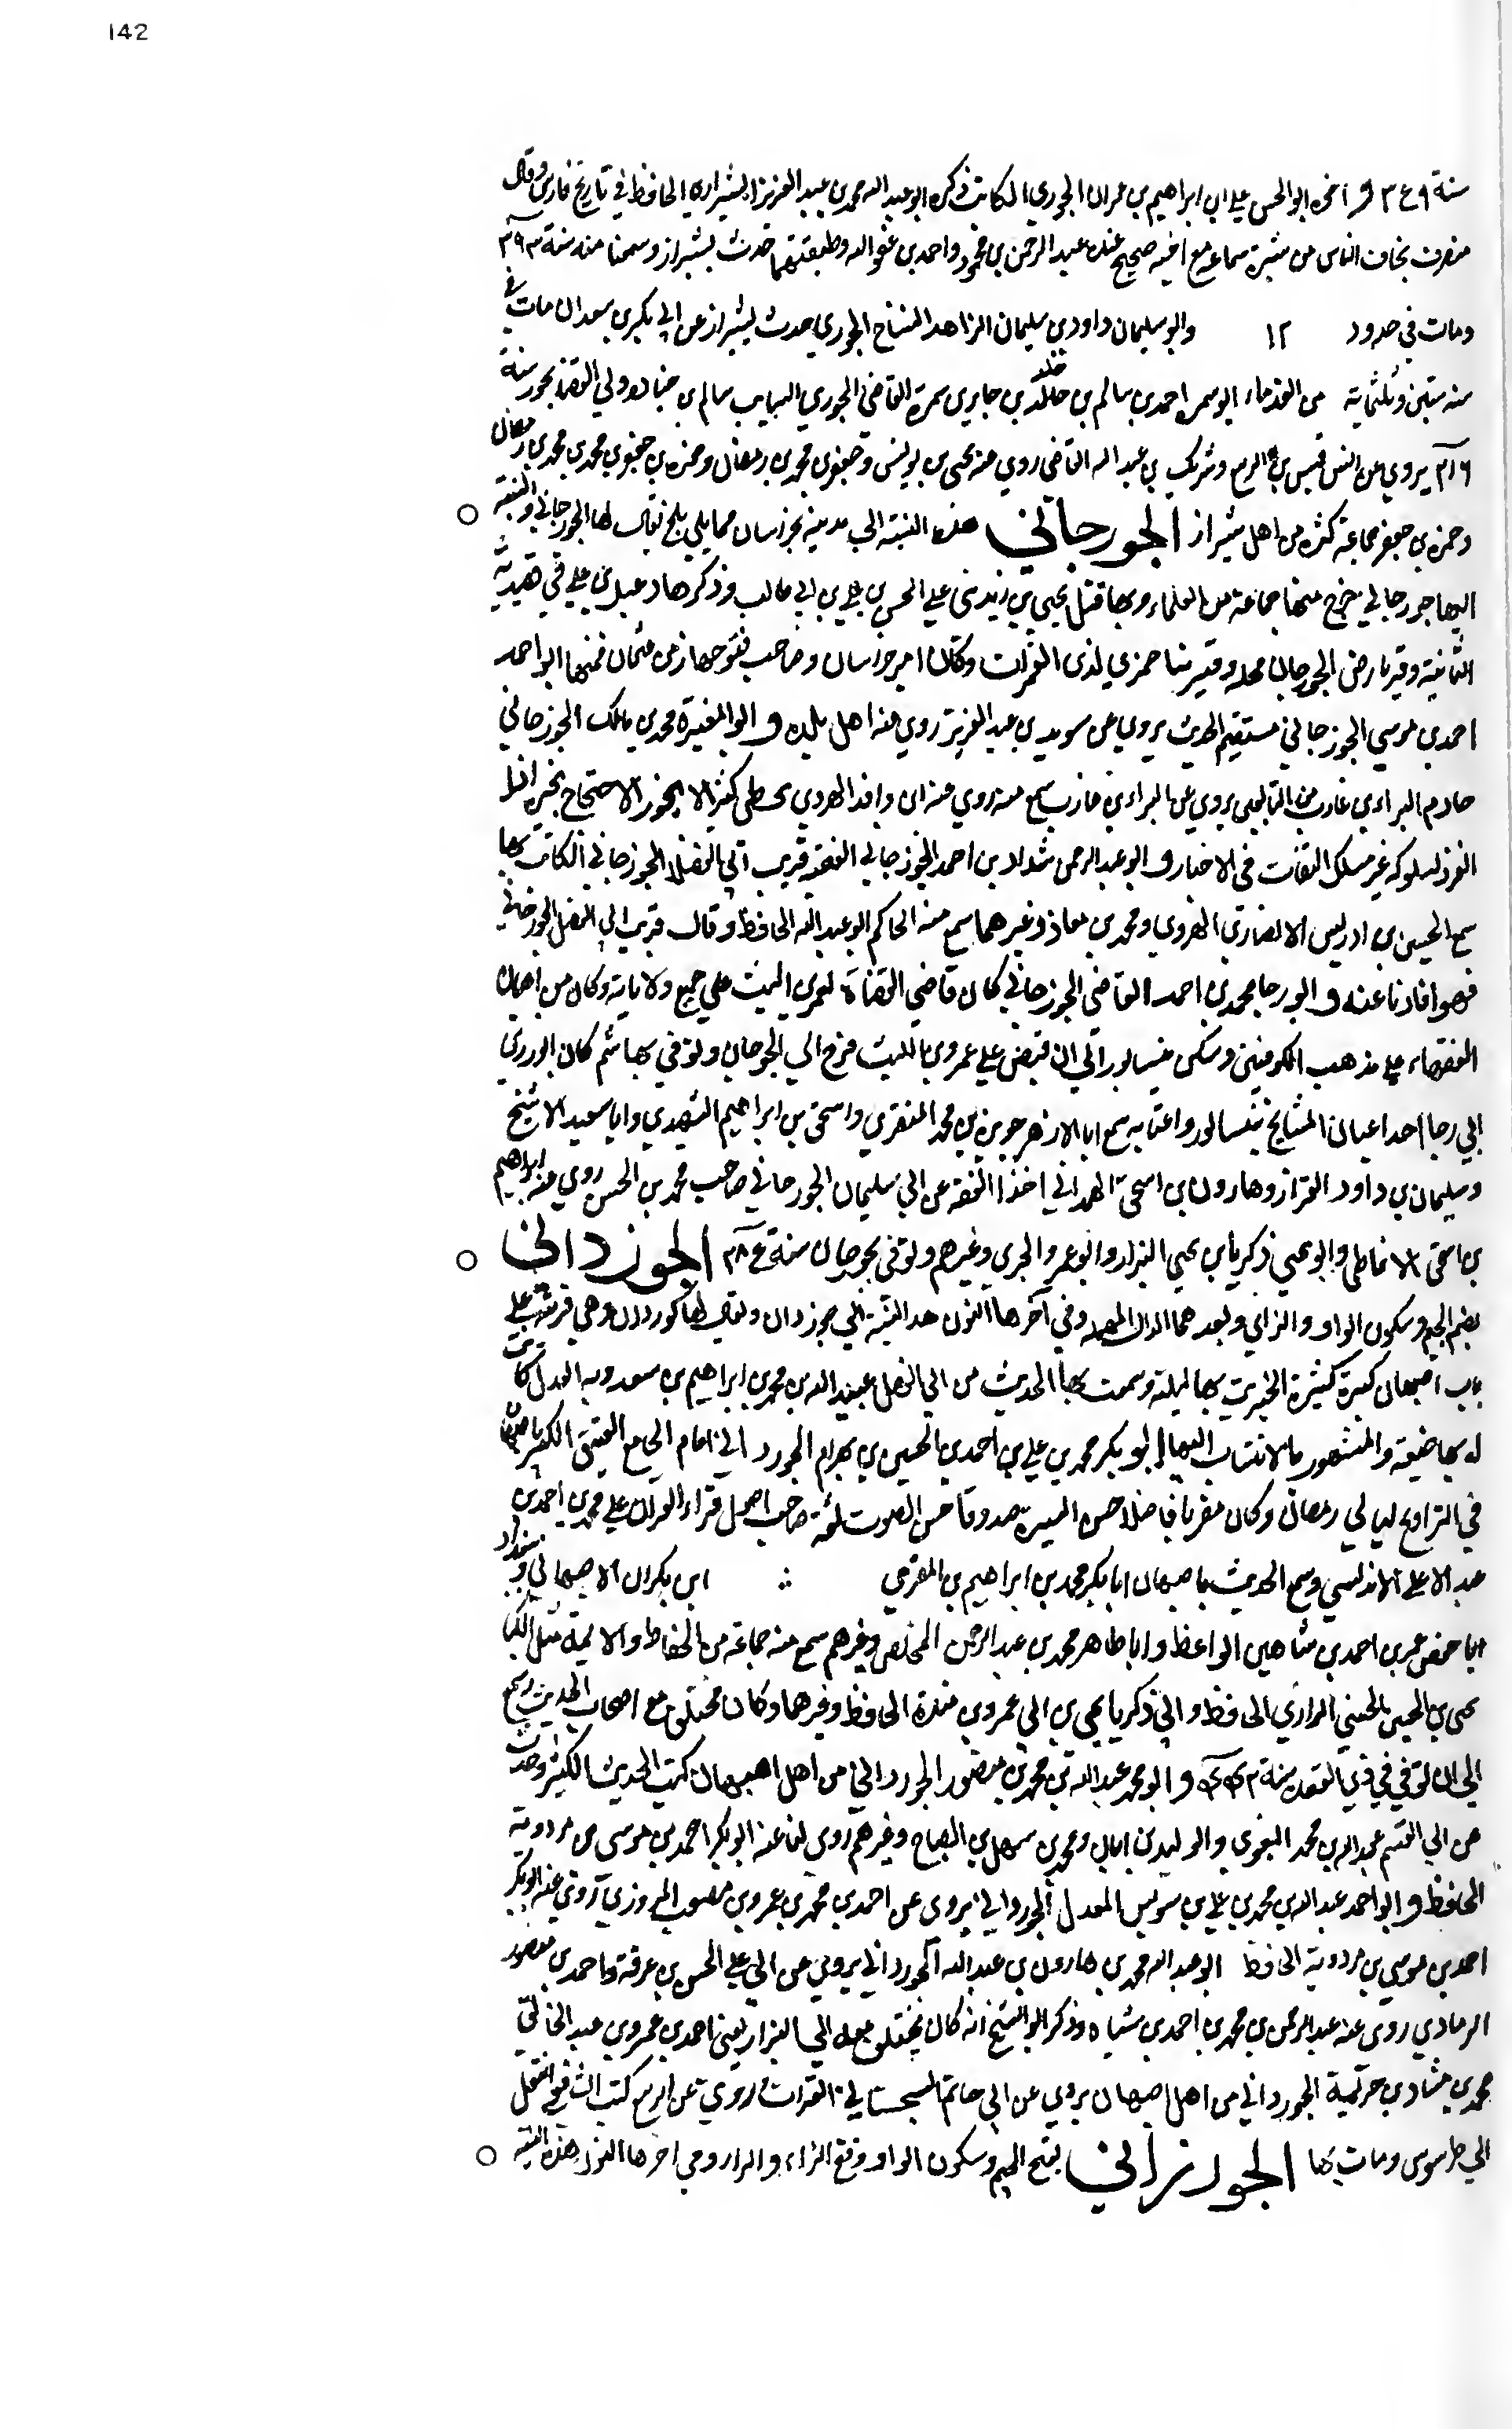 142
سنة ٣٤٩ و اخوه ابو الحسن علي بن ابراهيم بن عمران الجوري الكاتب ذكره ابو عبد الله محمد بن عبد العزيز الشيرازي الحافظ في تاريخ فارس وقال
منحرف بخلاف الناس من سماعه مع اخيه صحيح عنده عبد الرحمن بن محمود واحمد بن عفو الله وطبقتهما حدث بشيراز وسمعنا منه سنة ٣٩٣
ومات في حدود ١٢ وابو سليمان داود بن سليمان الزاهد الجوري حدث بشيراز عن ابي بكر بن سعدان مات في
سنة ستين وثلثماية من القدماء ابو سمرة احمد بن سالم بن خالد بن جابر بن سمرة القاضي الجوري سالم بن جنادة ولي القضا بجور سنة
٢١٦ يروي عن قيس بن الربيع وشريك بن عبد الله القاضي روي عنه يحيى بن يونس وجعفر بن محمد بن رمضان وحمزة بن جعفر بن محمد بن محمد بن رمضان
وحمزة بن جعفر جماعة كثيرة من اهل شيراز الجورجاني هذه النسبة الي مدينة بخراسان مما يلي بلخ يقال لها الجوزجان والنسبة
اليها جوزجاني خرج منها جماعة من العلماء وبها قتل يحيى بن زيد بن علي الحسين بن علي بن ابي طالب وذكرها دعبل بن علي في قصيدته
التائية وقبر بارض الجوزجان محله وقبر بباخمري لذي الغربات وكان امير خراسان وصاحب فتوحها زمن عثمان فمنها ابو احمد
احمد بن موسي الجوزجاني مستقيم الحديث يروي عن سويد بن عبد العزيز روي عنه اهل بلده و ابو المغيرة محمد بن مالك الجوزجاني
خادم البراء بن عازب من التابعين يروي عن البراء بن عازب سمع منه روي عنه ابن واقد الهروي يخطي كثيرا لا يجوز الاحتجاج بخبره اذا
انفرد لسلوكه غير مسلك الثقات في الاخبار و ابو عبد الرحمن شداد بن احمد الجوزجاني الفقيه قريب ابي الفضل الجوزجاني الكاتب بها
سمع الحسين بن ادريس الانصاري الهروي ومحمد بن معاذ وغيرهما سمع منه الحاكم ابو عبد الله الحافظ وقال قريب ابي الفضل الجوزجاني
فهو افادنا عنه و ابو رجا محمد بن احمد القاضي الجوزجاني كان قاضي القضاة لعمرو بن الليث علي جميع ولاياته وكان من اعيان
الفقهاء علي مذهب الكوفيين وسكن نيسابور الي ان قبض علي عمرو بن الليث فخرج الي الجوزجان وتوفي بها ثم كان
ابي رجا احد اعيان المشايخ بنيسابور واعقابه سمع ابا الازهر حوثرة بن محمد المنقري واسحق بن ابراهيم الشهيدي وابا سعيد الاشج
وسليمان بن داود القزاز وهارون بن اسحق الهمداني اخذ الفقه عن ابي سليمان الجوزجاني صاحب محمد بن الحسن روي عنه ابراهيم
بن اسحق الانماطي وابو يحيي زكريا بن يحيي البزار وابو عمرو الحيري وغيرهم وتوفي بجوزجان سنة ٢٨٤ الجوزداني
بضم الجيم وسكون الواو والزاي وبعدهما الدال المهملة وفي آخرها النون هذه النسبة الي جوزدان ويقال لها كوزدان وهي قرية علي
باب اصبهان كبيرة كثيرة الخير بت بها ليلة وسمعت بها الحديث من ابي الفضل عبيد الله بن محمد بن ابراهيم بن سعدويه العدل كانت
له بها ضيعة والمشهور بالانتساب اليها ابو بكر محمد بن علي بن احمد بن الحسين بن بهرام الجوزداني امام الجامع العتيق الكبير باصبهان
في التراويح ليالي رمضان وكان مقريا فاضلا حسن السيرة صدوقا حسن الصوت ثقة صاحب اصول قرا القران علي محمد بن احمد بن
عبد الاعلي الاندلسي وسمع الحديث باصبهان ابا بكر محمد بن ابراهيم بن المقري ابن بكران الاصبهاني وببغداد
ابا حفص عمر بن احمد بن شاهين الواعظ وابا طاهر محمد بن عبد الرحمن المخلص وغيرهم سمع منه جماعة من الحفاظ والائمة مثل الكيا
يحيى بن الحسين الحسيني الرازي الحافظ وابي زكريا يحيى بن ابي عمرو بن مندة الحافظ وغيرهما وكان يختلف مع اصحاب الحديث ويسمع
الي ان توفي في ذي القعدة سنة ٤٤٢ و ابو محمد عبد الله بن محمد بن منصور الجورداني من اهل اصبهان كتب الحديث الكثير وحدث
عن ابي القسم عبد الله بن محمد البغوي والوليد بن ابان ومحمد بن سهل بن الصباح وغيرهم روي لنا عنه ابو بكر احمد بن موسى بن مردوية
الحافظ و ابو احمد عبد الله بن محمد بن علي بن سويس المعدل الجورداني يروي عن احمد بن محمد بن عمرو بن مصعب المروزي روي عنه ابو بكر
احمد بن موسي بن مردوية الحافظ ابو عبد الله محمد بن هارون بن عبد الله الجورداني يروي عن ابي علي الحسن بن عرفة واحمد بن منصور
الرمادي روي عنه عبد الرحمن بن محمد بن احمد بن سياه وذكر ابو الشيخ انه كان يختلف معه الي البزار يعني احمد بن عمرو بن عبد الخالق
محمد بن مشاد بن خزيمة الجورداني من اهل اصبهان يروي عن ابي حاتم السجستاني القرات وروي عن الربيع كتب الشافعي انتقل
الي طرسوس ومات بها الجورزاني بفتح الجيم وسكون الواو وفتح الزاء والراء وفي اخرها النون هذه النسبة